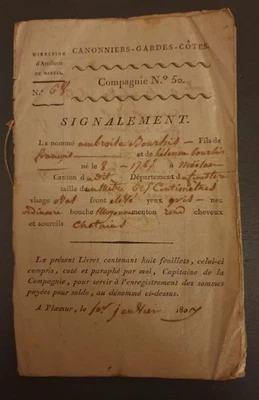 DIRECTION
d'Artillerie
CANONNIERS-GARDES-CÔTES
Compagnie N.º 50.
N.º 68
SIGNALEMENT.
LE nommé ambroise Bourhis - Fils de
françois et de
né le 8 1767 à
Canton d dit Département d
taille de un Mètre Centimètres
visage oval front élevé yeux gris - nez
ordinaire bouche Moyenne menton rond cheveux
et sourcils chatains
Le présent Livret contenant huit feuillets, celui-ci
compris, coté et paraphé par moi, Capitaine de
la Compagnie, pour servir à l'enregistrement des sommes
payées pour solde, au dénommé ci-dessus.
A le janvier